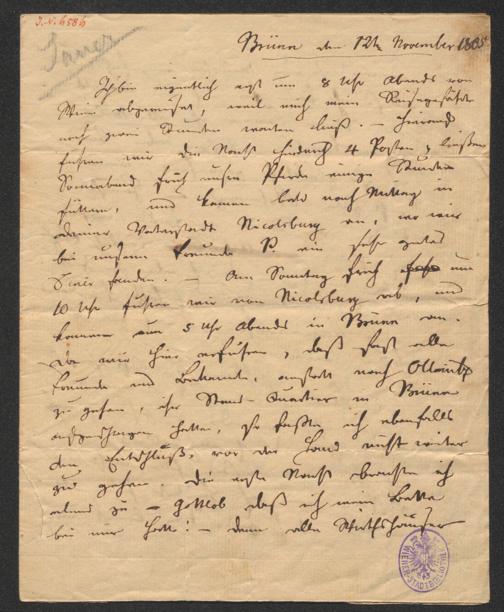 I.N. 6586
Brünn den 12ten November 1805
Ich bin eigentlich erst um 8 Uhr Abends von
Wien abgereiset, weil mich mein Reisegefährte
noch zwei Stunden warten ließ. – Hierauf
fuhren wir die Nacht hindurch 4 Posten, ließen
Sonnabend früh unsre Pferde einige Stunden
füttern, und kamen bald nach Mittag in
deiner Vaterstadt Nicolsburg an, wo wir
bei unserm Freunde P. ein sehr gutes
fanden. – Am Sonntag früh um
10 Uhr fuhren wir von Nicolsburg ab, und
kamen um 5 Uhr Abends in Brünn an.
Da wir hier erfuhren, daß fast alle
Freunde und Bekannte, anstatt nach Ollmütz
zu gehen, ihr Stand-Quartier in Brünn
aufgeschlagen hatten, so faßte ich ebenfalls
den Entschluß, vor der Hand nicht weiter
zu gehen. Die erste Nacht brachte ich
elend zu – Gottlob daß ich mein Bette
bei mir hatte! – denn alle Wirthshäuser
WIENER STADTBIBLIOTHEK